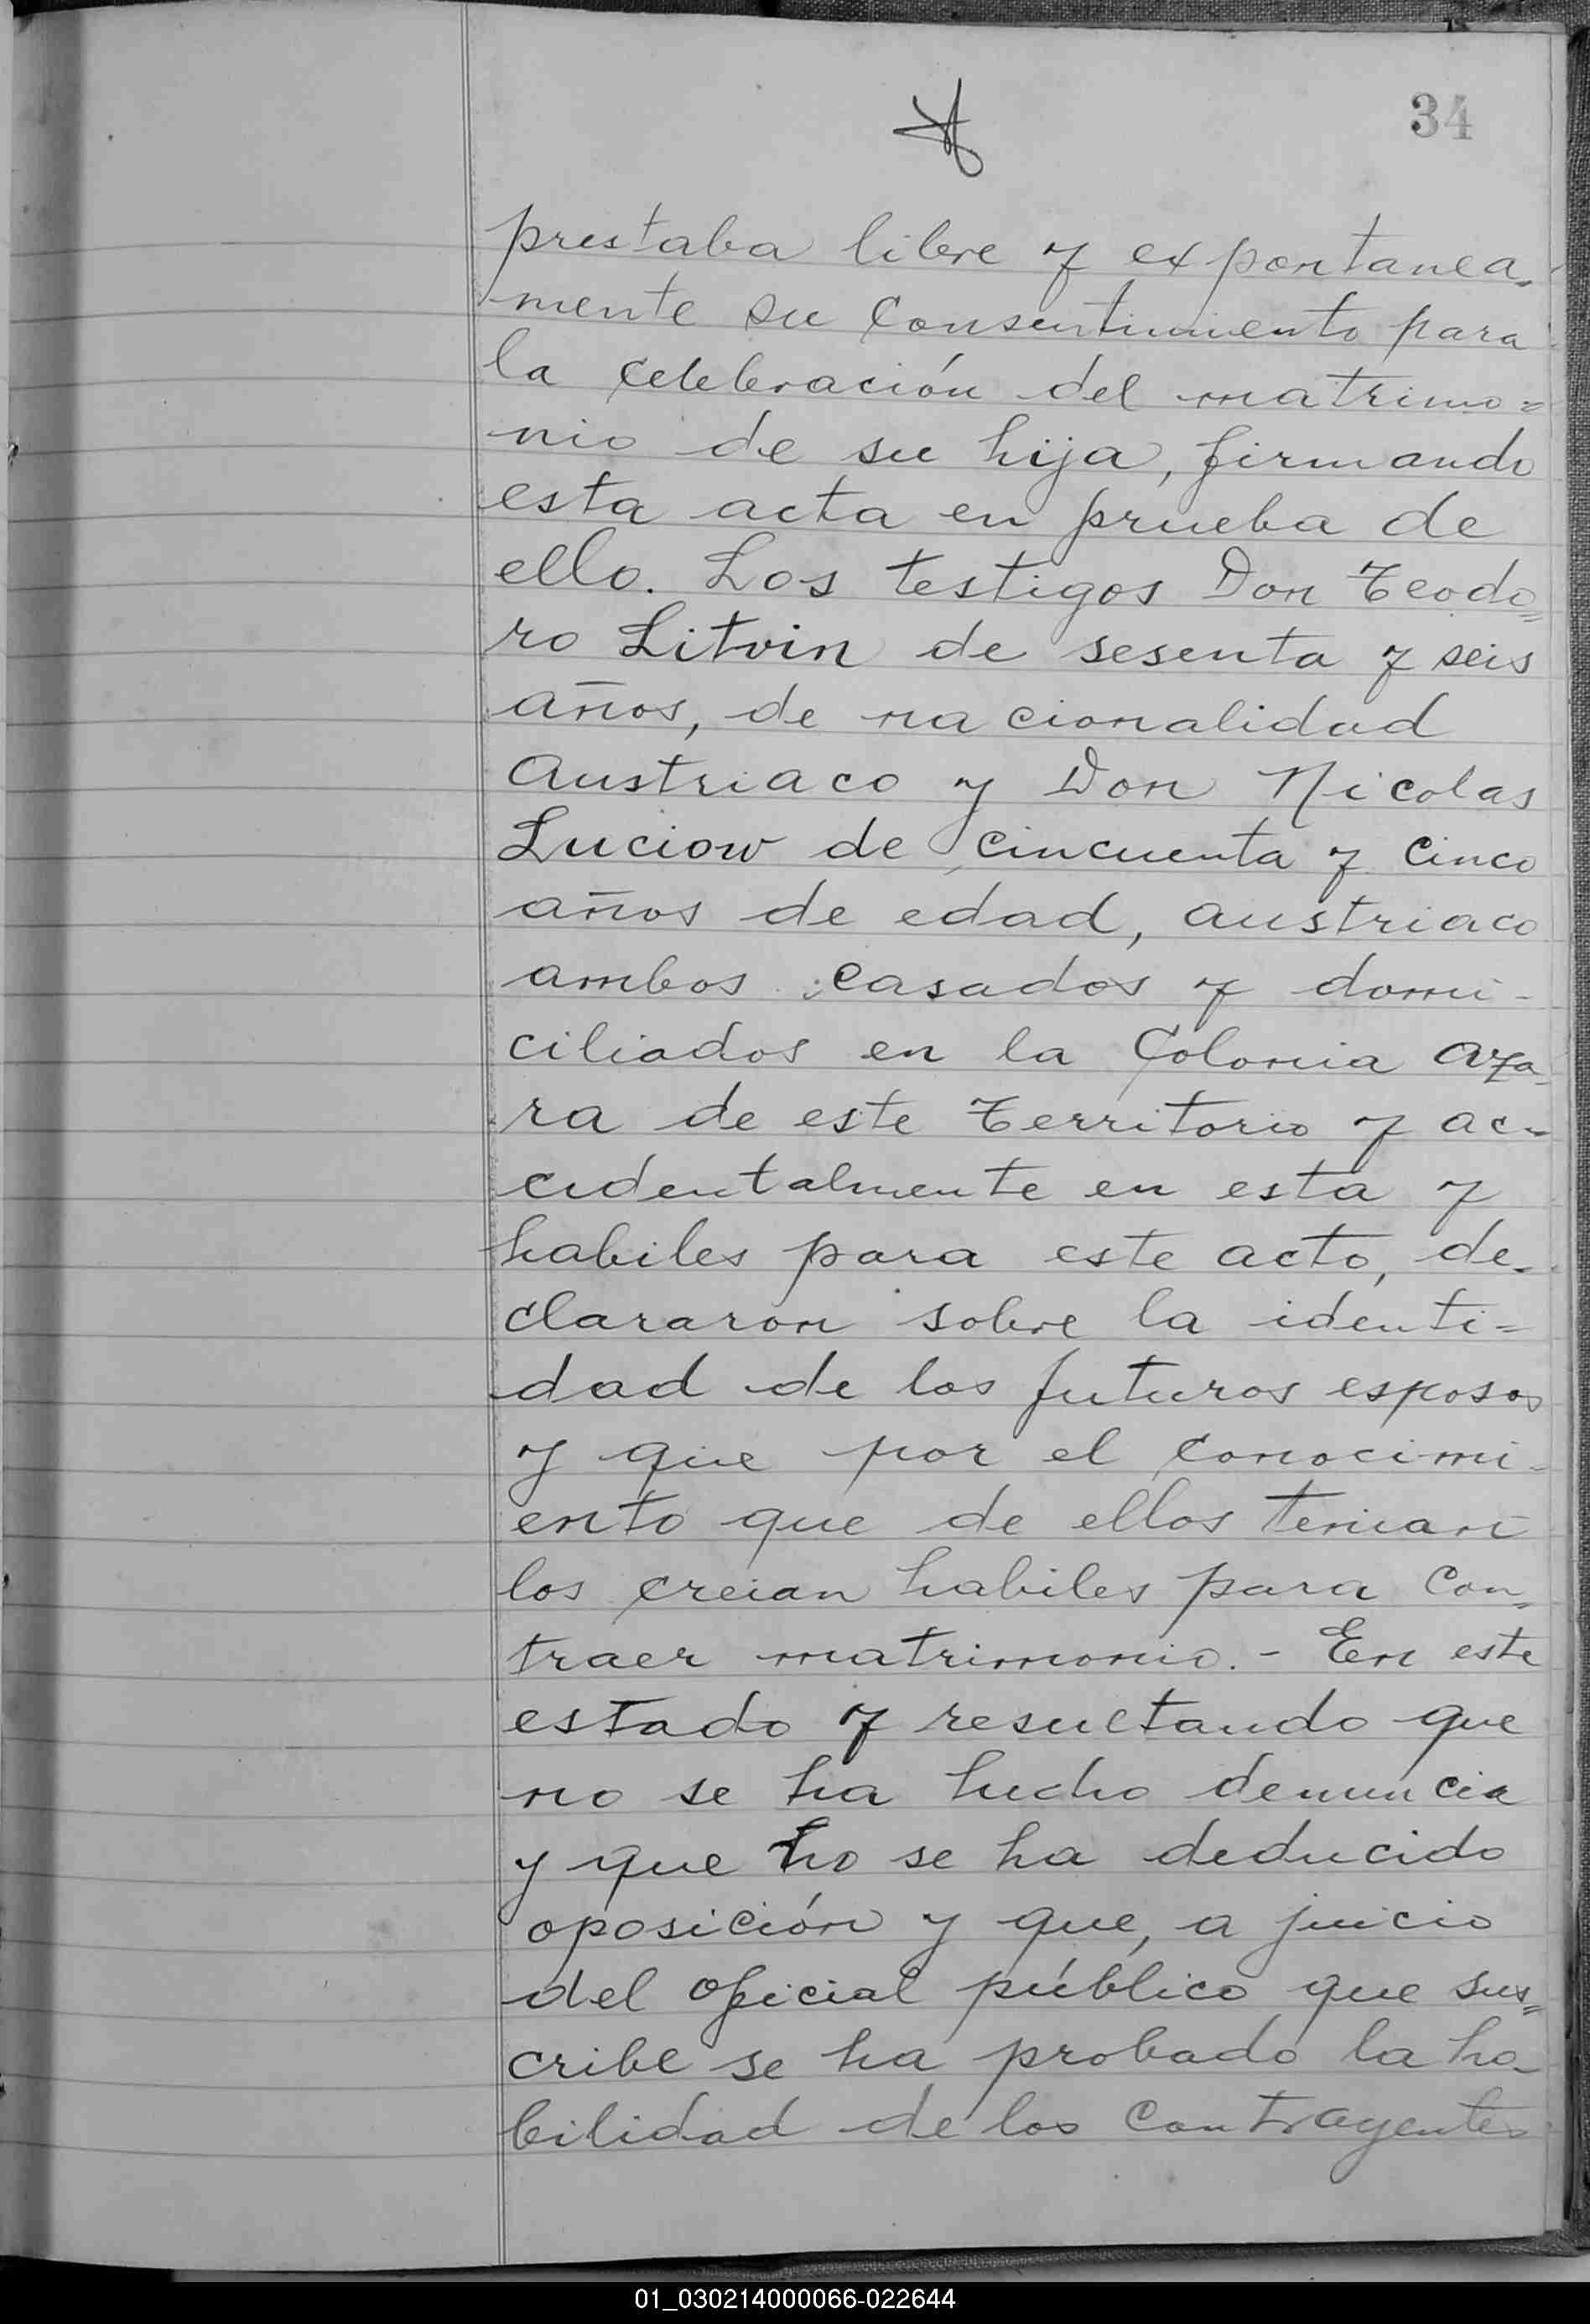 34
prestaba libre y expontanea-
mente su consentimiento para
la celebración del matrimo=
nio de su hija, firmando
esta acta en prueba de
ello. Los testigos Don Teodo=
ro Litvin de sesenta y seis
años, de nacionalidad
Austriaco y Don Nicolas
Luciow de cincuenta y cinco
años de edad, austriaco
ambos casados y domi-
ciliados en la Colonia Aza-
ra de este Territorio y ac-
cidentalmente en esta y
habiles para este acto, de-
clararon sobre la identi=
dad de los futuros esposos
y que por el conocimi-
ento que de ellos tenian
los creian habiles para con-
traer matrimonio.- En este
estado y resultando que
no se ha hecho denuncia
y que no se ha deducido
oposición y que, a juicio
del oficial público que sus=
cribe se ha probado la ha-
bilidad de los contrayentes
01_030214000066-022644